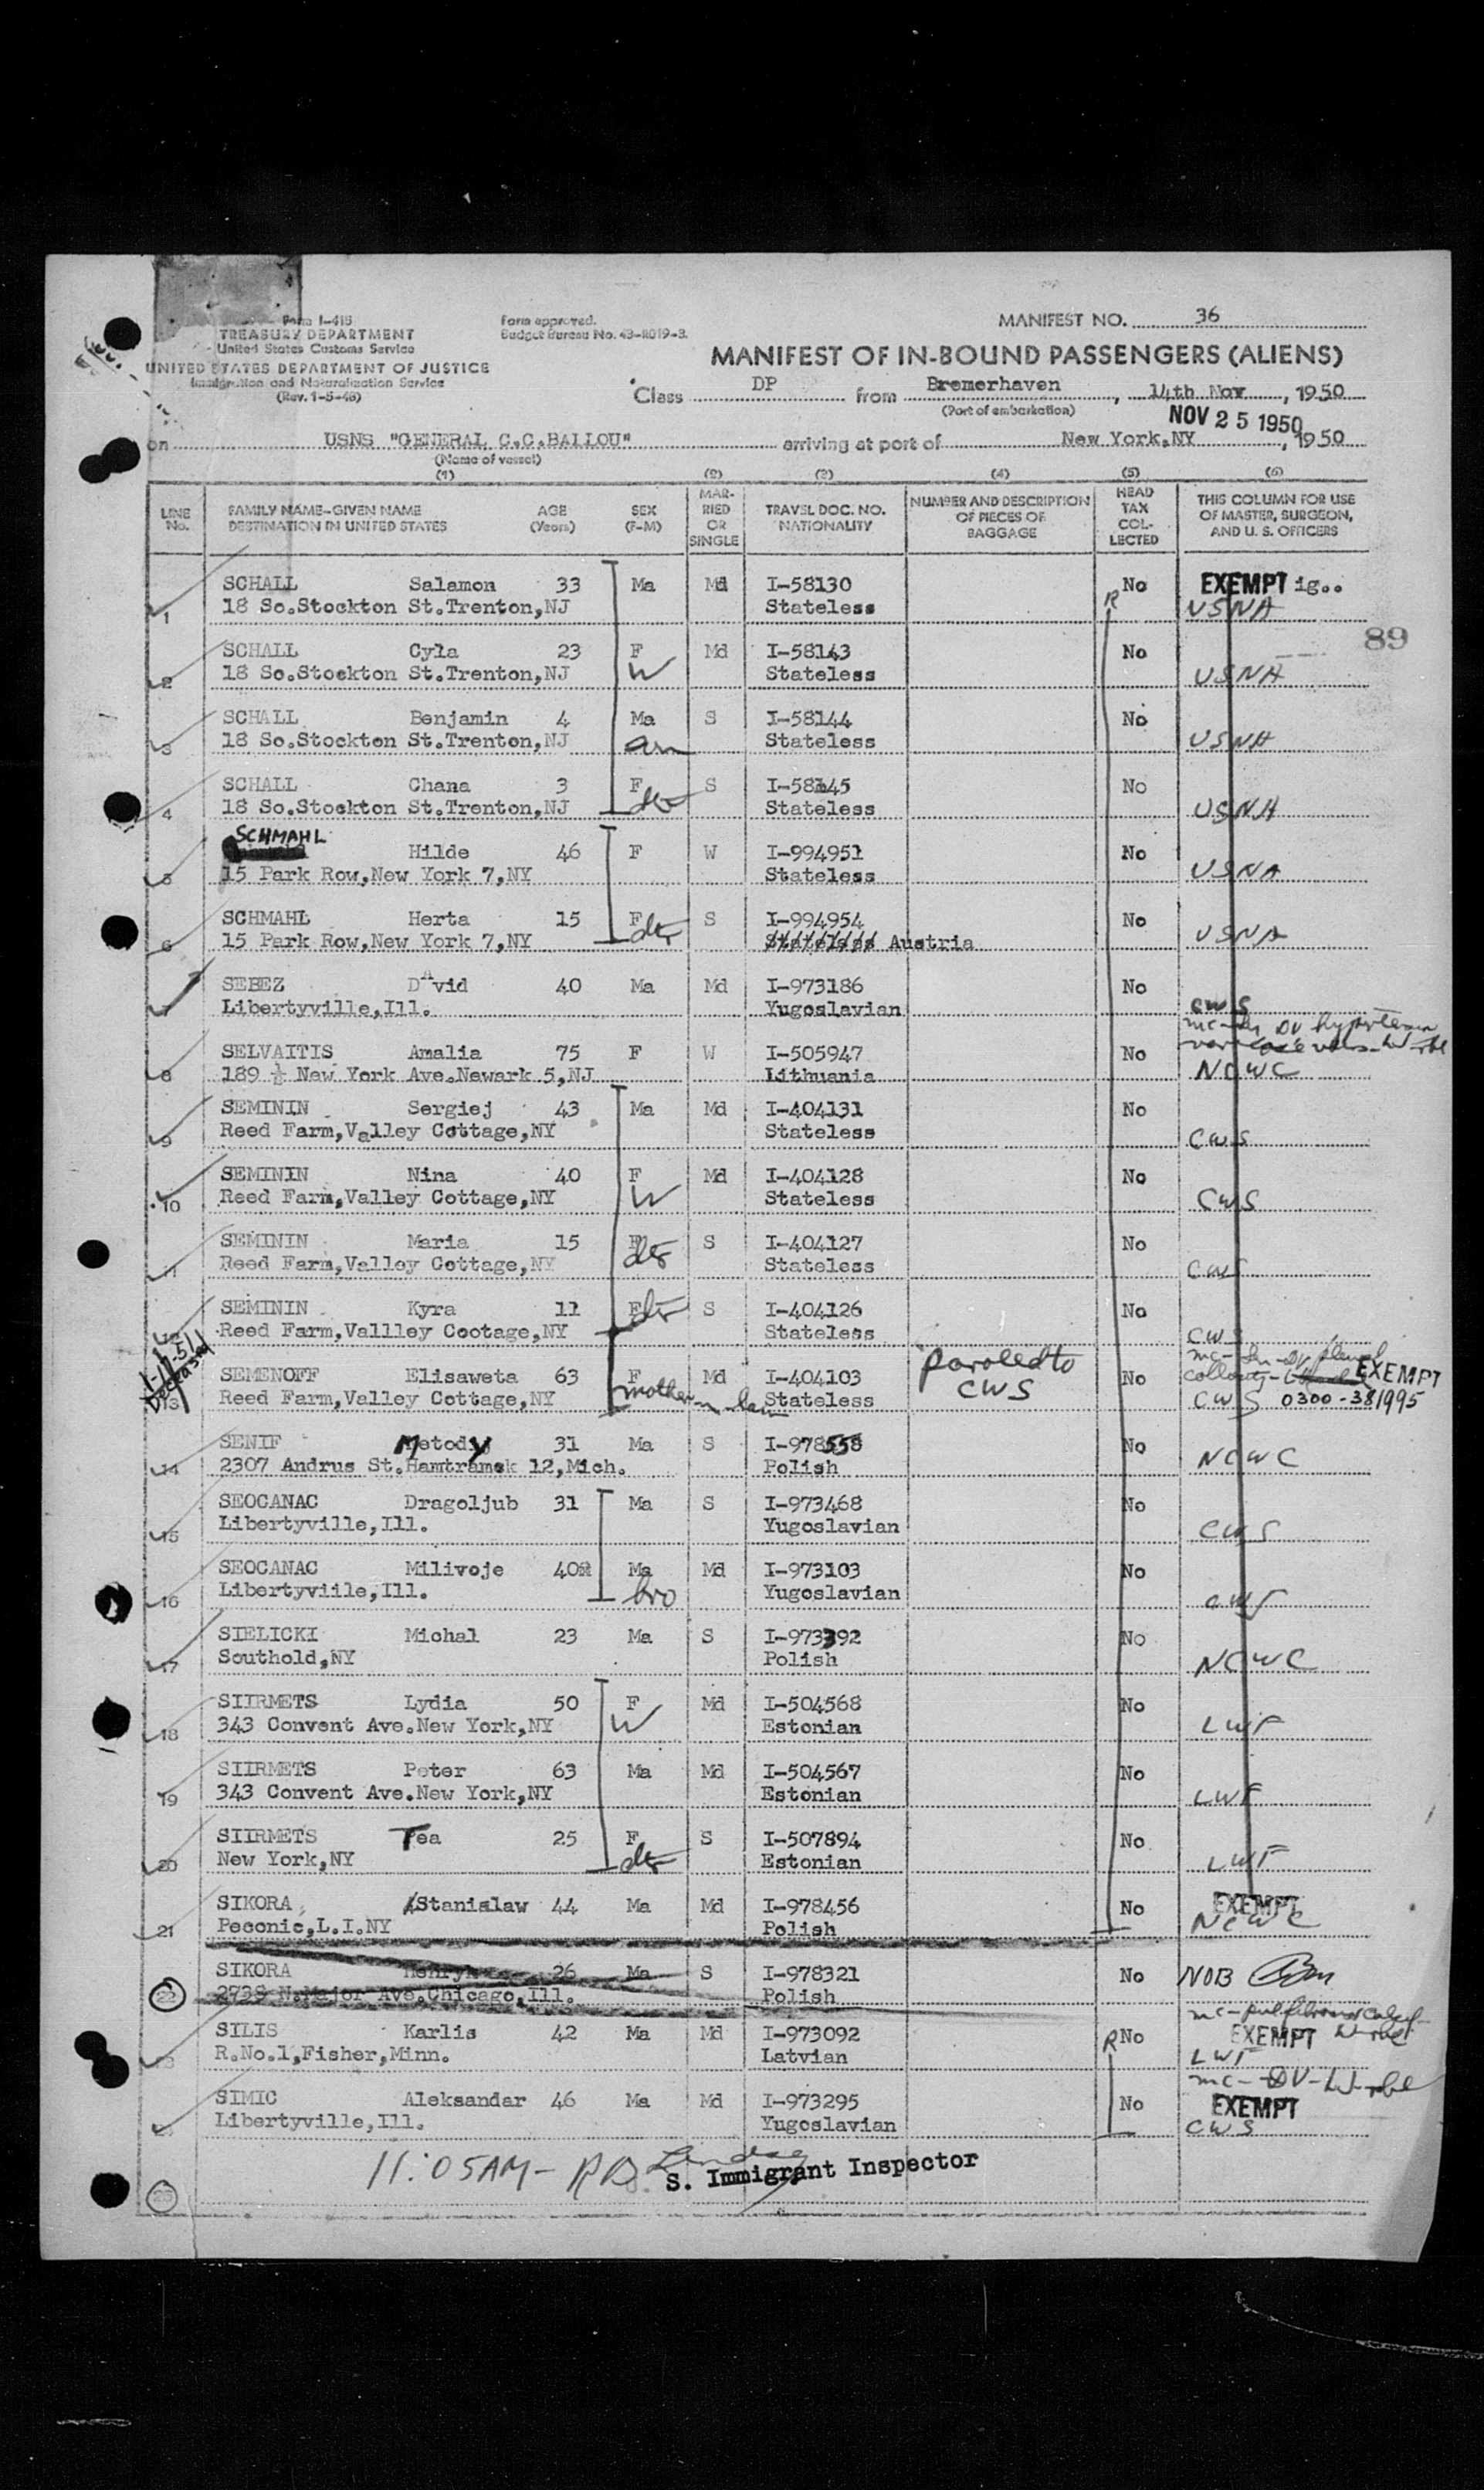 Form I-418
TREASURY DEPARTMENT
United States Customs Service
UNITED STATES DEPARTMENT OF JUSTICE
Immigration and Naturalization Service
(Rev. 1-5-48)
Form approved.
Budget Bureau No. 43-R019-3.
MANIFEST NO. 36
MANIFEST OF IN-BOUND PASSENGERS (ALIENS)
Class DP from Bremerhaven, 14th Nov, 1950
(Port of embarkation)
NOV 25 1950
on USNS "GENERAL C.C.BALLOU" arriving at port of New York,NY, 1950
(Name of vessel)
(1) (2) (3) (4) (5) (6)
LINE No. FAMILY NAME-GIVEN NAME DESTINATION IN UNITED STATES AGE (Years) SEX (F-M) MARRIED OR SINGLE TRAVEL DOC. NO. NATIONALITY NUMBER AND DESCRIPTION OF PIECES OF BAGGAGE HEAD TAX COLLECTED THIS COLUMN FOR USE OF MASTER, SURGEON, AND U. S. OFFICERS
SCHALL Salamon 33 Ma Md I-58130 R No EXEMPT ig..
1 18 So.Stockton St.Trenton,NJ Stateless USNA
89
SCHALL Cyla 23 F Md I-58143 No
2 18 So.Stockton St.Trenton,NJ W Stateless USNA
SCHALL Benjamin 4 Ma S I-58144 No
3 18 So.Stockton St.Trenton,NJ Stateless USNA
SCHALL Chana 3 F S I-58145 No
4 18 So.Stockton St.Trenton,NJ dtr Stateless USNA
SCHMAHL
Hilde 46 F W I-994951 No
5 15 Park Row,New York 7,NY Stateless USNA
SCHMAHL Herta 15 F S I-994954 No
6 15 Park Row,New York 7,NY dtr Stateless Austria USNA
SEBEZ DAvid 40 Ma Md I-973186 No
7 Libertyville,Ill. Yugoslavian CWS
SELVAITIS Amalia 75 F W I-505947 No
8 189 ½ New York Ave.Newark 5,NJ Lithuania NCWC
SEMININ Sergiej 43 Ma Md I-404131 No
9 Reed Farm,Valley Cottage,NY Stateless CWS
SEMININ Nina 40 F Md I-404128 No
10 Reed Farm,Valley Cottage,NY W Stateless CWS
SEMININ Maria 15 F S I-404127 No
11 Reed Farm,Valley Cottage,NY dtr Stateless CWS
SEMININ Kyra 11 F dtr S I-404126 No
12 Reed Farm,Vallley Cootage,NY Stateless CWS
1-17-51
Deceased
SEMENOFF Elisaweta 63 F Md I-404103 paroled to No EXEMPT
13 Reed Farm,Valley Cottage,NY mother-in-law Stateless CWS CWS 0300-381995
SENIF Metody 31 Ma S I-978558 No
14 2307 Andrus St.Hamtramck 12,Mich. Polish NCWC
SEOCANAC Dragoljub 31 Ma S I-973468 No
15 Libertyville,Ill. Yugoslavian CWS
SEOCANAC Milivoje 40 Ma Md I-973103 No
16 Libertyviile,Ill. bro Yugoslavian CWS
SIELICKI Michal 23 Ma S I-973392 No
17 Southold,NY Polish NCWC
SIIRMETS Lydia 50 F Md I-504568 No
18 343 Convent Ave.New York,NY W Estonian LWF
SIIRMETS Peter 63 Ma Md I-504567 No
19 343 Convent Ave.New York,NY Estonian LWF
SIIRMETS Tea 25 F S I-507894 No
20 New York,NY dtr Estonian LWF
SIKORA Stanislaw 44 Ma Md I-978456 No EXEMPT
21 Peconic,L.I.NY Polish NCWC
SIKORA Henryk 26 Ma S I-978321 No NOB
22 2738 N.Major Ave.Chicago,Ill. Polish
SILIS Karlis 42 Ma Md I-973092 R No EXEMPT
23 R.No.1,Fisher,Minn. Latvian LWF
SIMIC Aleksandar 46 Ma Md I-973295 No EXEMPT
24 Libertyville,Ill. Yugoslavian CWS
11:05AM- RB. Lindsay
S. Immigrant Inspector
25